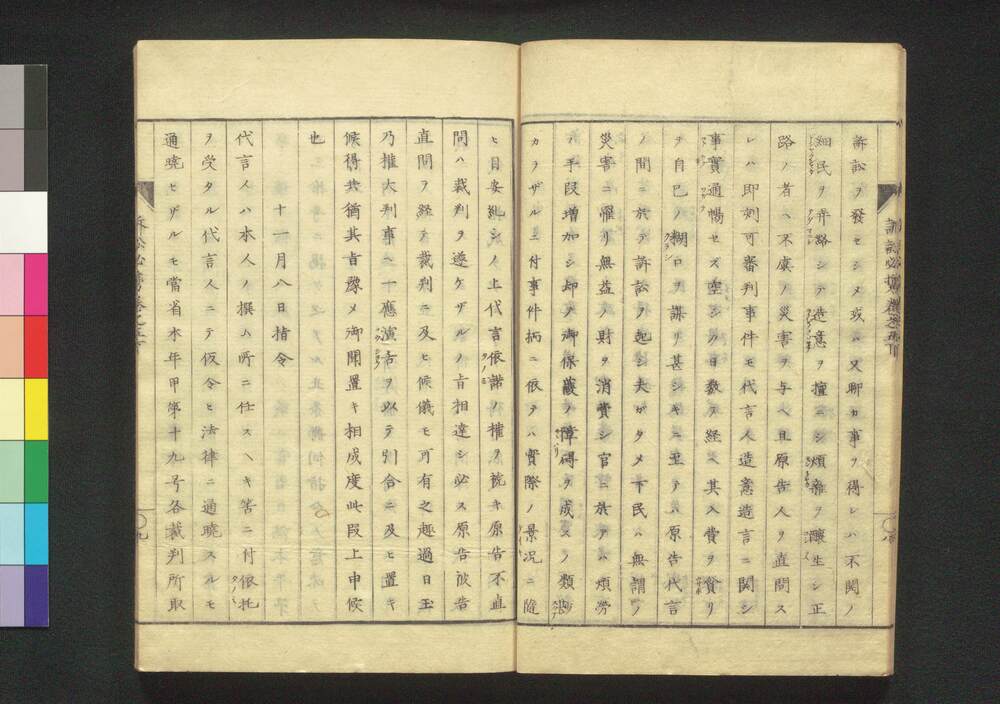 訴訟ヲ發セシメ或ハ又聊カ事ヲ得レハ不関ノ
細民ヲ弄賂シテ造意ヲ擅ニシ煩雜ヲ醸生シ正
路ノ者ヘ不虞ノ災害ヲ与ヘ且原告人ヲ直問ス
レハ即刻可審判事件モ代言人造意造言ニ関シ
事實通暢セズ空シク日数ヲ経ヘ其入費ヲ貪リ
ヲ自己ノ糊口ヲ謀リ甚シキニ至テハ原告代言
ノ間ニ於テ訴訟ヲ起シ夫ガタメ下民ハ無謂ノ
災害ニ罹リ無益ノ財ヲ消費シ官ニ於テハ煩労
ノ手段増加シ却テ御保護ノ障碍ヲ成スノ類
カラザルニ付事件柄ニ依テハ實際ノ景況ニ随
ヒ目安糺シノ上代言依諾ノ権ヲ説キ原告不直
問ハ裁判ヲ遂ケザルノ旨相達シ必ス原告被告
直問ヲ経テ裁判ニ及ヒ候儀モ可有之趣過日玉
乃権大判事ヘ一應演舌ヲ以テ引合ニ及ヒ置キ
候得共猶其旨豫メ御聞置キ相成度此段上申候
也
十一月八日指令
代言人ハ本人ノ撰ム所ニ任スヘキ筈ニ付依托
ヲ受タル代言人ニテ仮令ヒ法律ニ通曉スルモ
通曉セザルモ當省本年甲第十九号各裁判所取